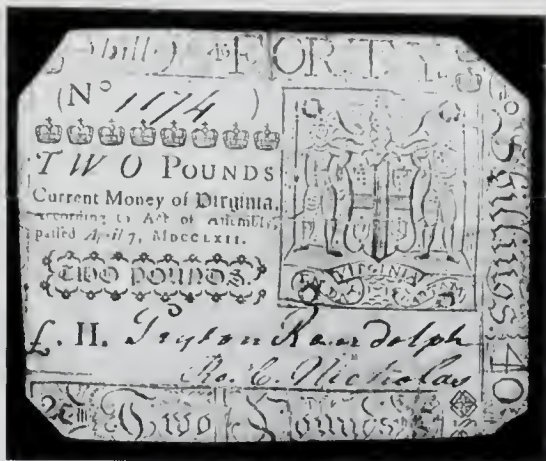 FORTY
(No 1174)
TWO POUNDS
Current Money of Virginia,
according to Act of Assembly,
passed April 7, MDCCLXII.
TWO POUNDS.
VIRGINIA
£. II. Peyton Randolph
Ro. C. Nicholas
Two Pounds
Shillings. 40